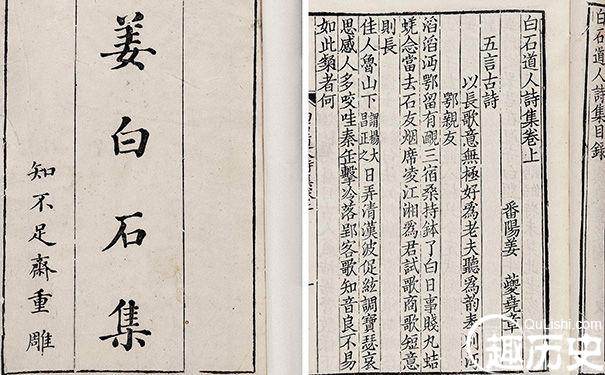 姜白石集
知不足齋重雕
白石道人詩集目錄
白石道人詩集卷上
番陽姜 夔堯章
五言古詩
以長歌意無極好為老夫聽為韵奉別沔
鄂親友
滔滔沔鄂留有靦三宿桑持鉢了白日事賤丸蛣
蜣念當去石友烟席凌江湘為君試歌商歌短意
則長
佳人魯山下謂楊大昌正之日弄清漢波促絃調寶瑟哀
思感人多咬哇秦缶擊冷落郢客歌知音良不易
如此類者何
QuLishi.com
趣历史